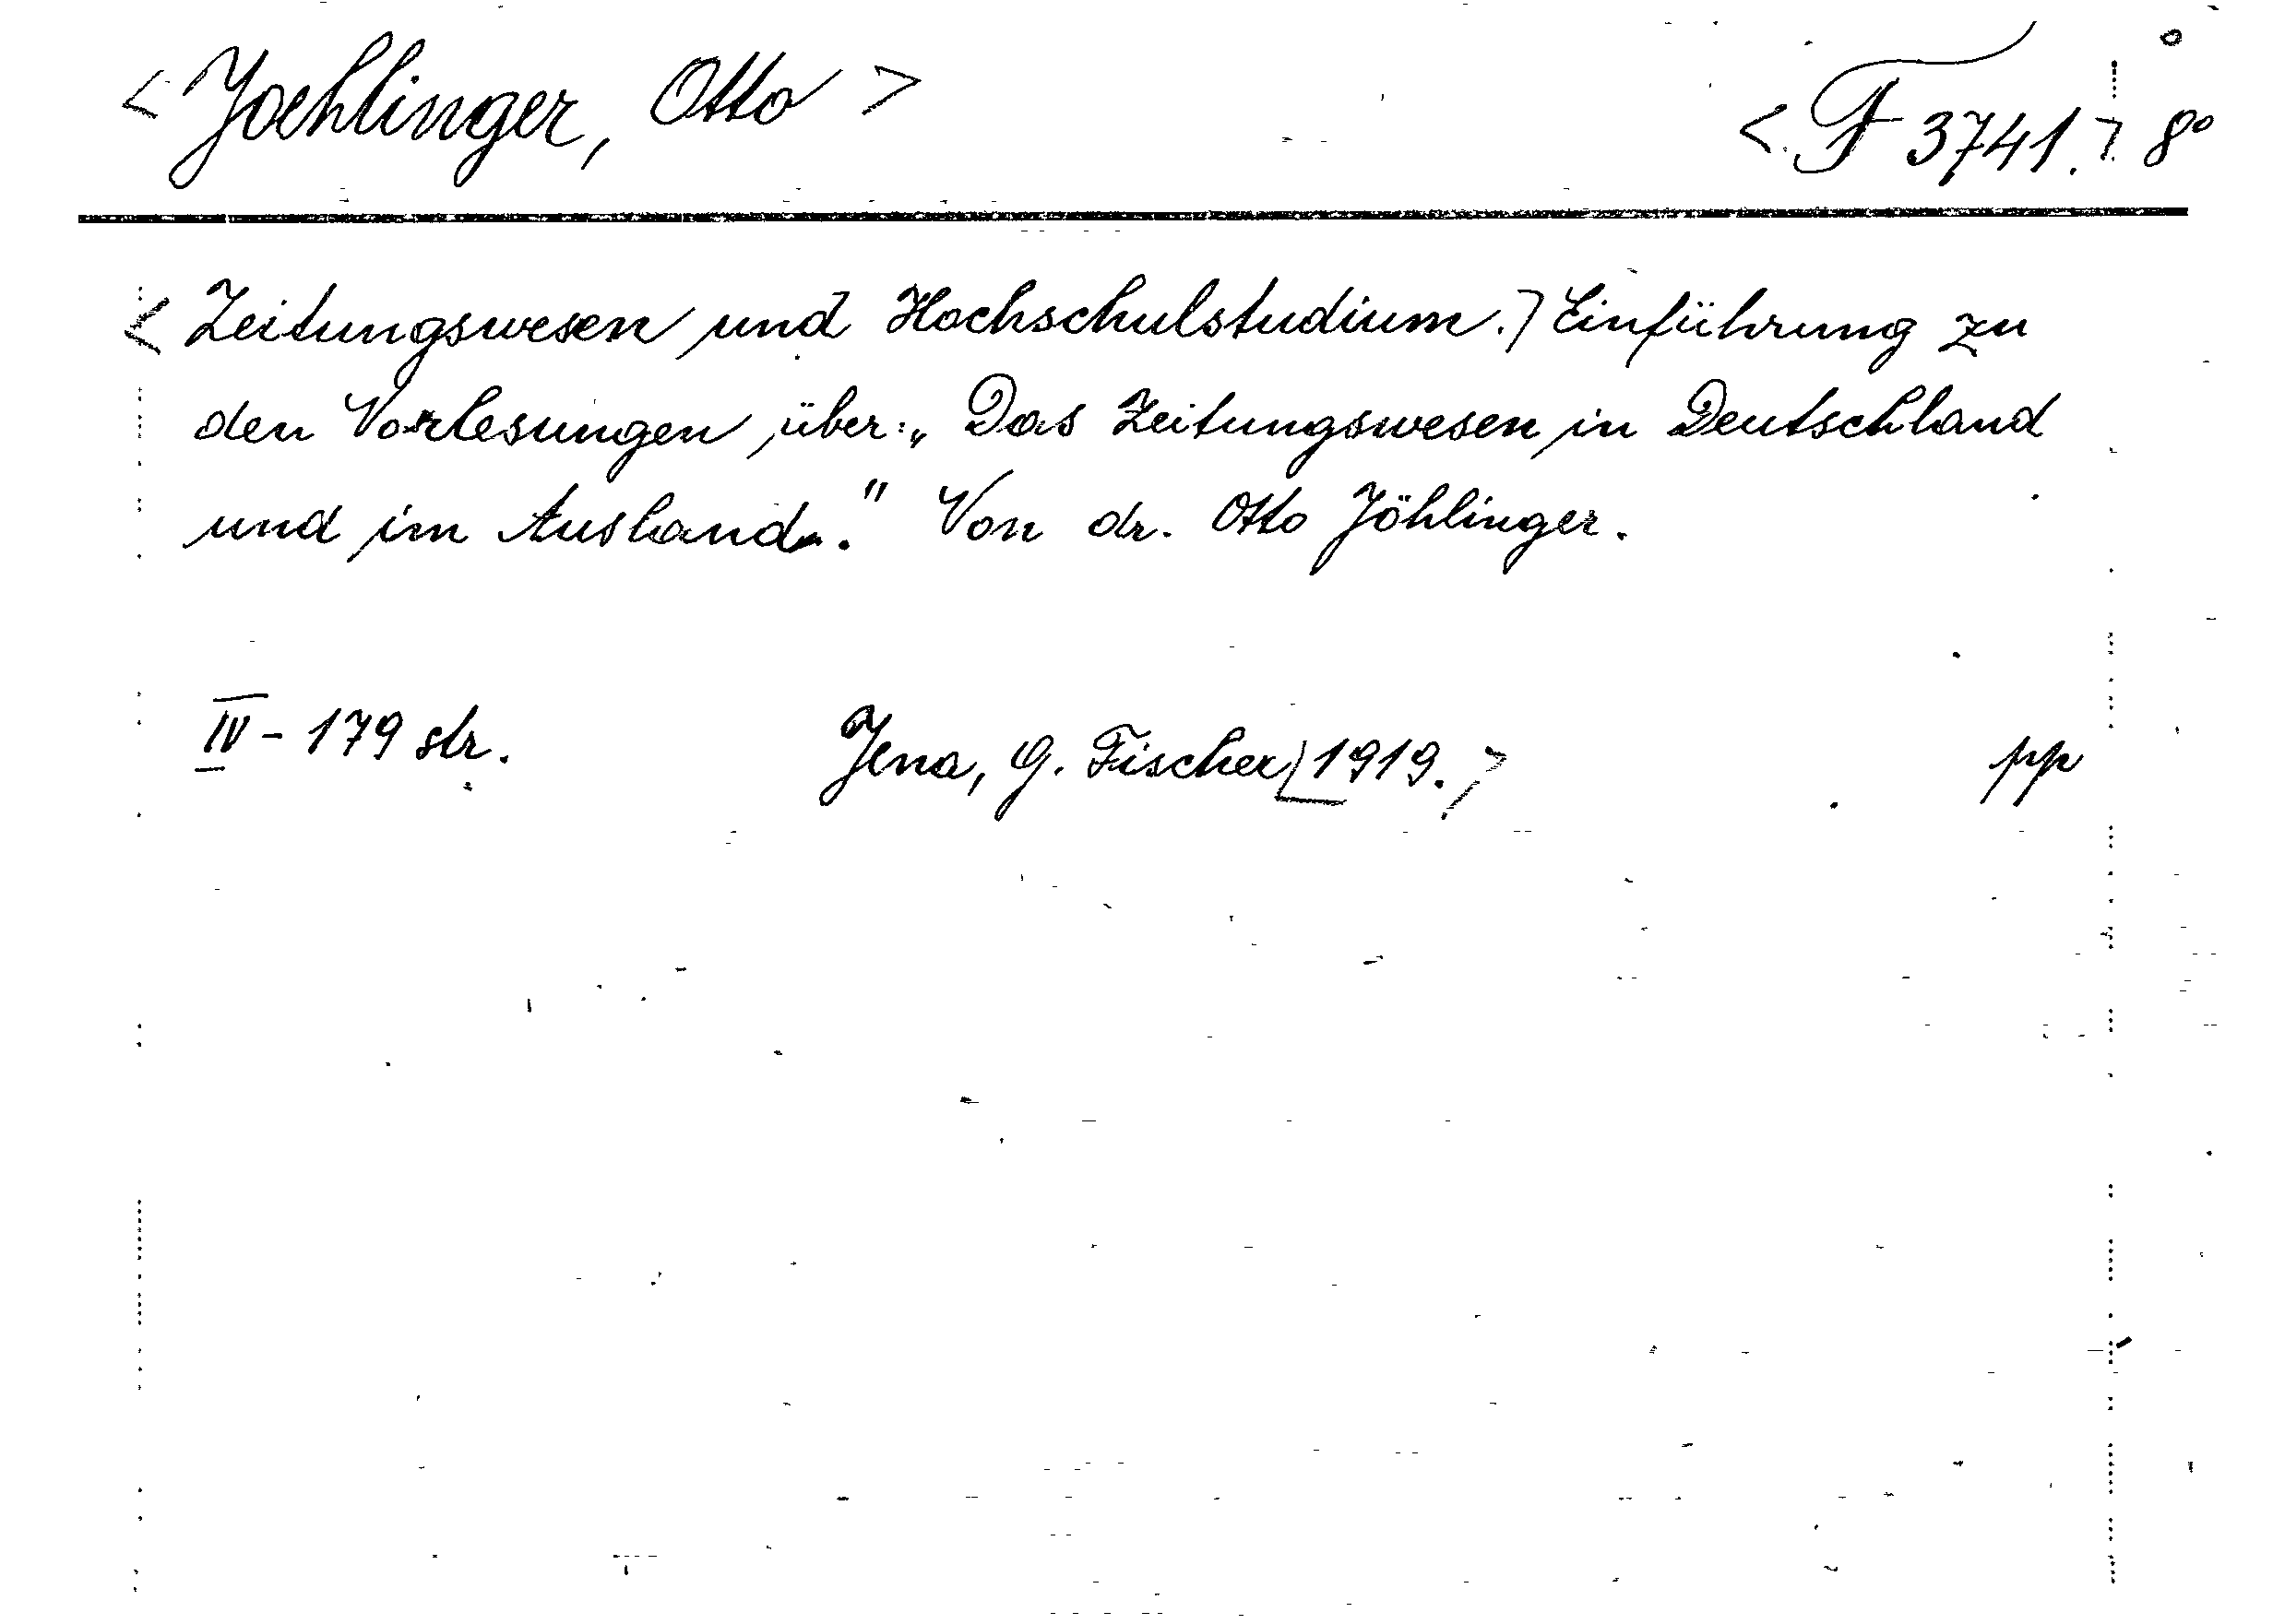 < Joehlinger, Otto >
< F 3741. > 8°
< Zeitungswesen und Hochschulstudium. > Einführung zu
den Vorlesungen über: „Das Zeitungswesen in Deutschland
und im Auslande." Von dr. Otto Jöhlinger.
IV - 179 str. Jena, G. Fischer < 1919. > pp